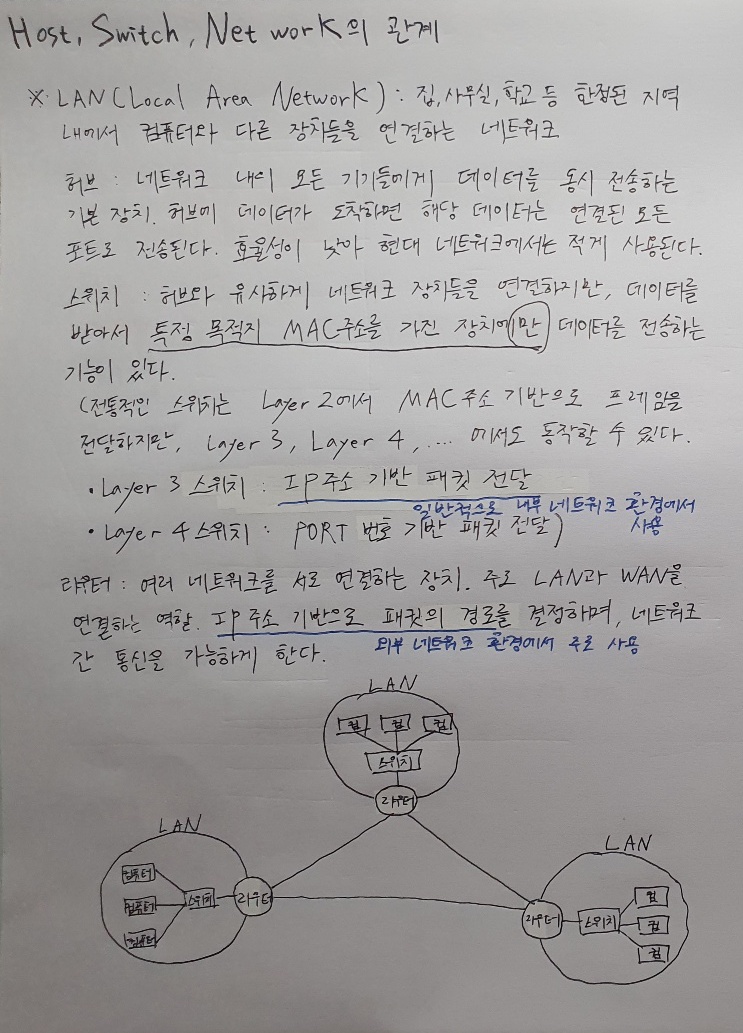 Host, Switch, Network의 관계
※ LAN(Local Area Network) : 집, 사무실, 학교 등 한정된 지역
내에서 컴퓨터와 다른 장치들을 연결하는 네트워크
허브 : 네트워크 내의 모든 기기들에게 데이터를 동시 전송하는
기본 장치. 허브에 데이터가 도착하면 해당 데이터는 연결된 모든
포트로 전송된다. 효율성이 낮아 현대 네트워크에서는 적게 사용된다.
스위치 : 허브와 유사하게 네트워크 장치들을 연결하지만, 데이터를
받아서 특정 목적지 MAC주소를 가진 장치에만 데이터를 전송하는
기능이 있다.
(전통적인 스위치는 Layer 2에서 MAC주소 기반으로 프레임을
전달하지만, Layer 3, Layer 4, .... 에서도 동작할 수 있다.
• Layer 3 스위치 : IP주소 기반 패킷 전달
일반적으로 내부 네트워크 환경에서
사용
• Layer 4 스위치 : PORT 번호 기반 패킷 전달)
라우터 : 여러 네트워크를 서로 연결하는 장치. 주로 LAN과 WAN을
연결하는 역할. IP주소 기반으로 패킷의 경로를 결정하며, 네트워크
간 통신을 가능하게 한다.
외부 네트워크 환경에서 주로 사용
LAN
컴 컴 컴
스위치
라우터
LAN
컴퓨터
컴퓨터
컴퓨터
스위치
라우터
LAN
라우터
스위치
컴
컴
컴